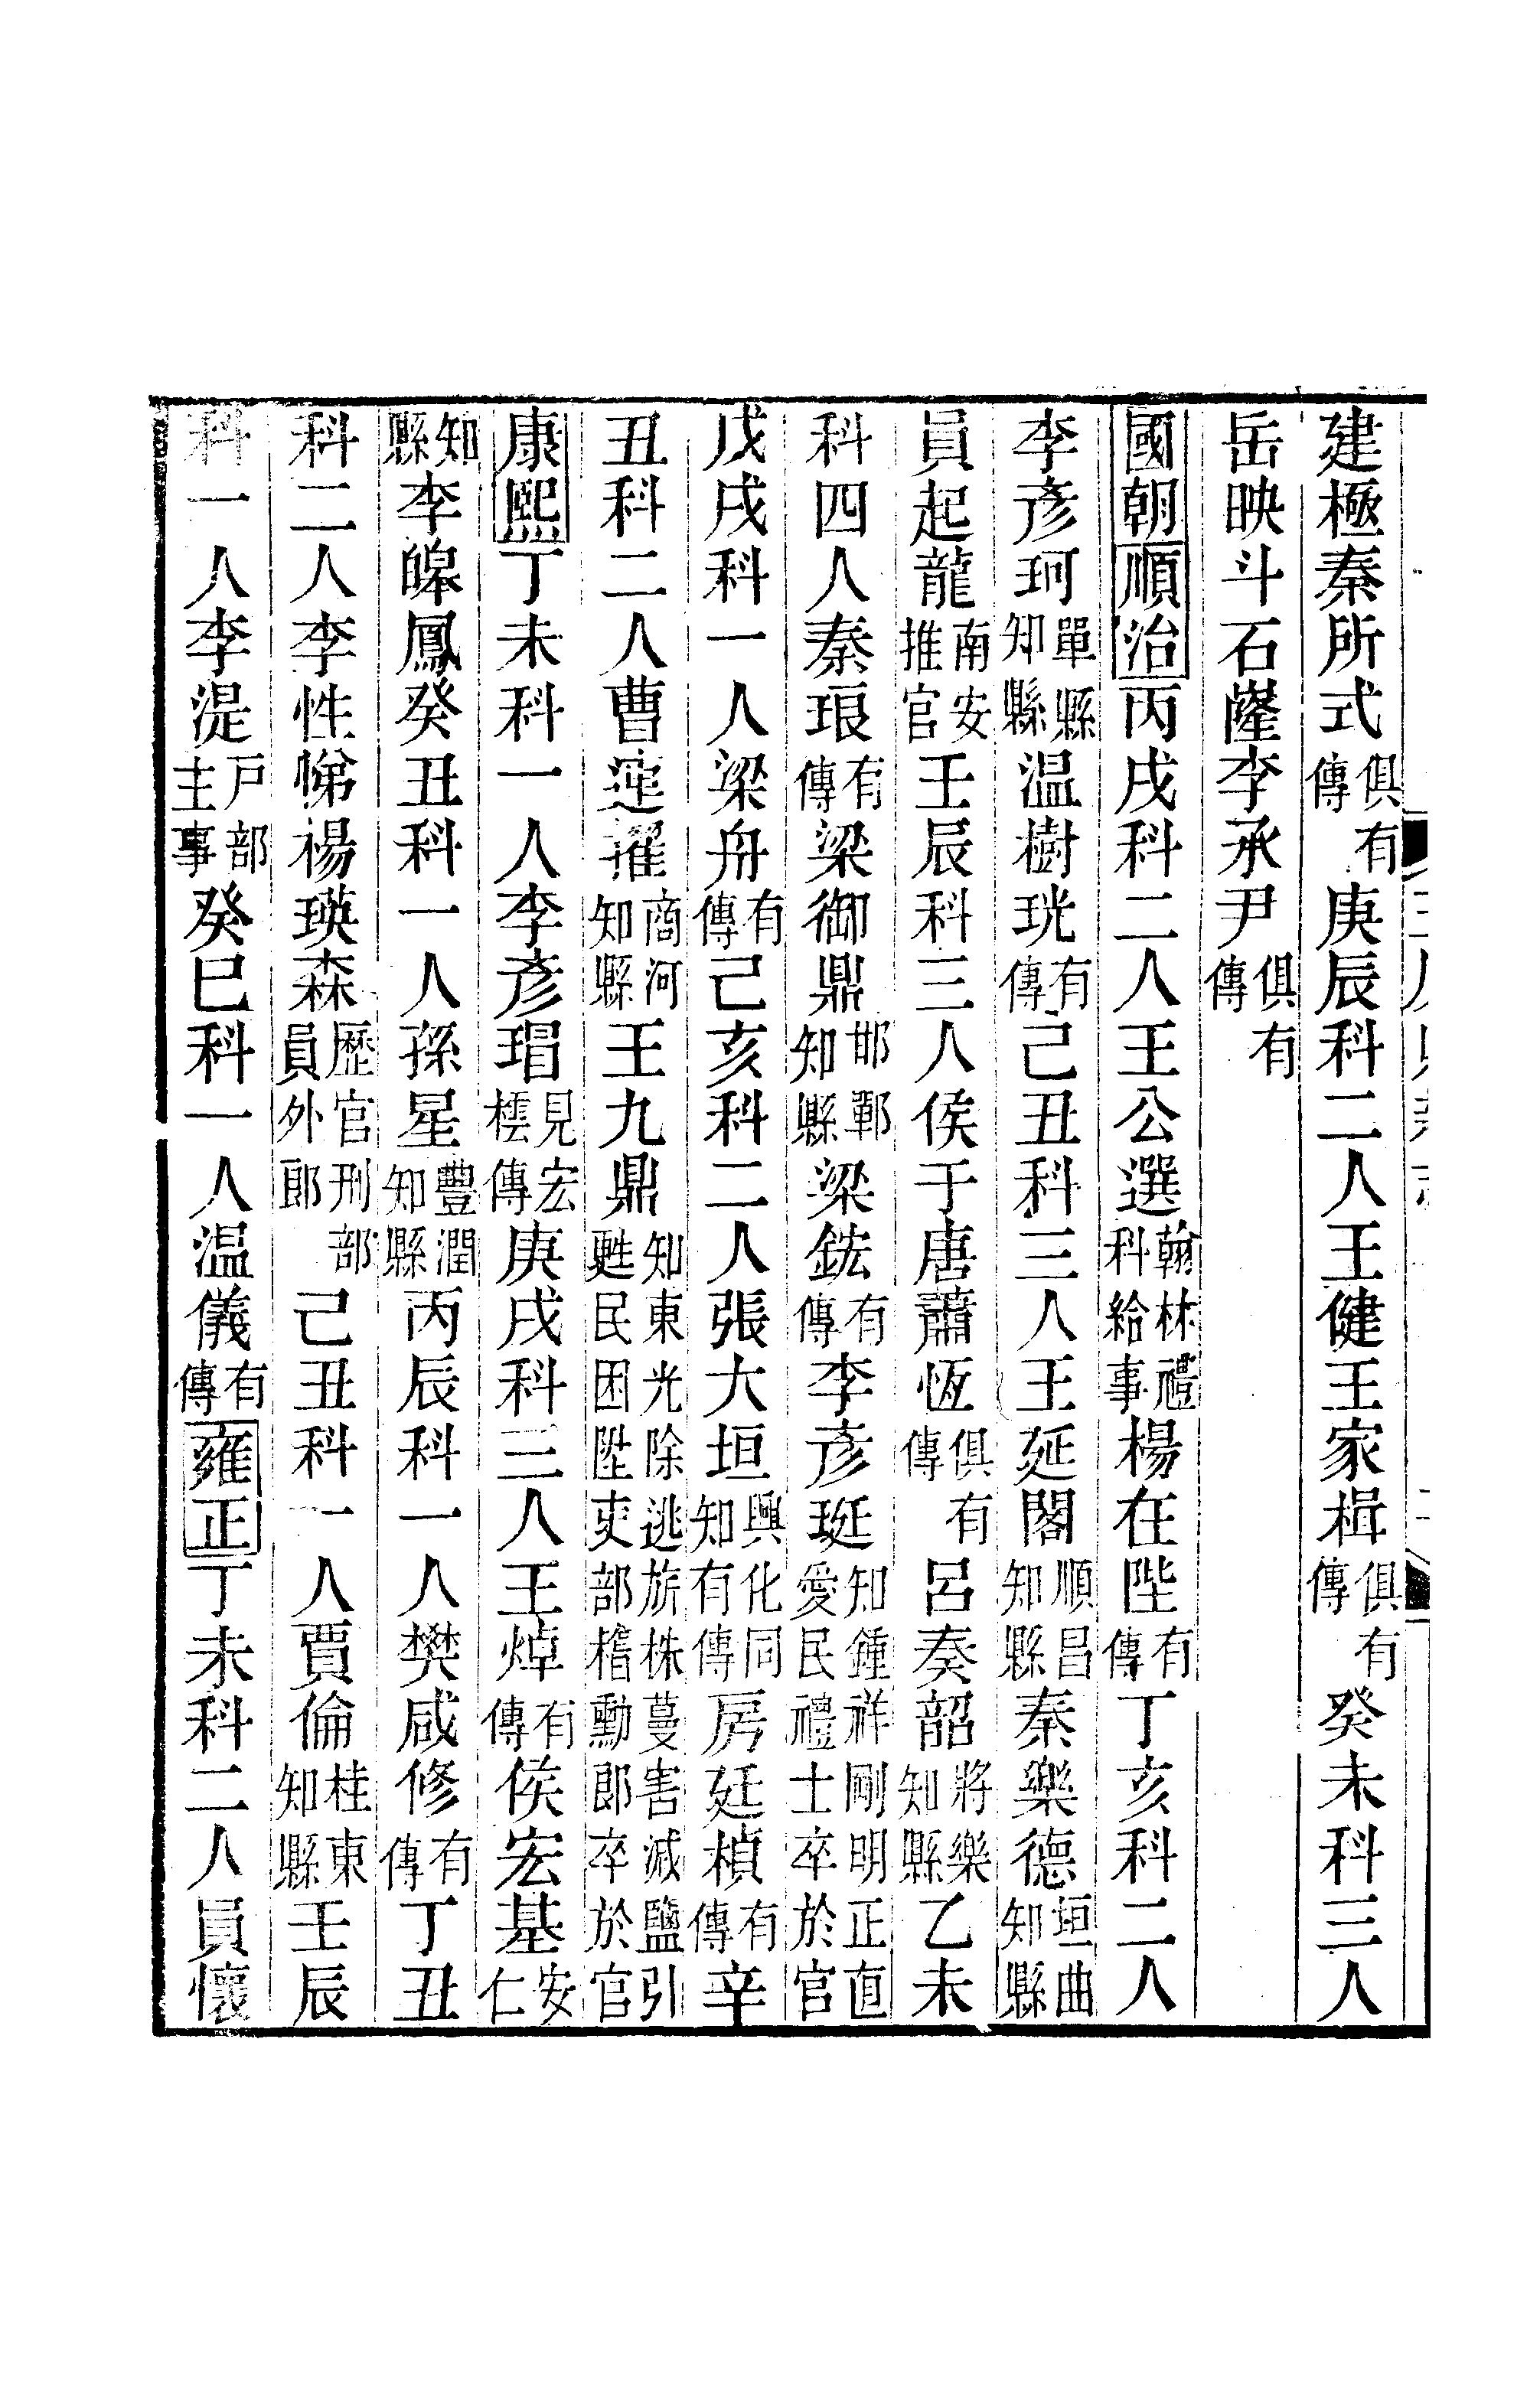 建極秦所式俱有傳庚辰科二人王健王家楫俱有傳癸未科三人
岳映斗石𡾋李承尹俱有傳
國朝順治丙戌科二人王公選翰林禮科給事楊在陛有傳丁亥科二人
李彥珂單縣知縣温樹珖有傳己丑科三人王延閣順昌知縣秦樂德垣曲知縣
員起龍南安推官壬辰科三人侯于唐蕭恆俱有傳呂奏韶將樂知縣乙未
科四人秦琅有傳梁御鼎邯鄲知縣梁鋐有傳李彥珽知鍾祥剛明正直愛民禮士卒於官
戊戌科一人梁舟有傳己亥科二人張大垣興化同知有傳房廷楨有傳辛
丑科二人曹莚擢商河知縣王九鼎知東光除逃旂株蔓害減鹽引甦民困陞吏部稽勳郎卒於官
康熙丁未科一人李彥瑁見宏橒傳庚戌科三人王焯有傳侯宏基安仁
知縣李皞鳳癸丑科一人孫星豐潤知縣丙辰科一人樊咸修有傳丁丑
科二人李性悌楊瑛森歷官刑部員外郎己丑科一人賈倫桂東知縣壬辰
科一人李湜戸部主事癸巳科一人温儀有傳雍正丁未科二人員懷